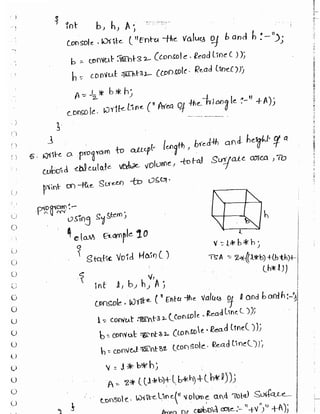 { int b, h, A;
Console.Write ("Enter the values of b and h :-");
b = convert.ToInt32 (Console.ReadLine());
h = convert.ToInt32 (Console.ReadLine());
A = ½ * b * h;
console.WriteLine ("Area of the triangle :-" + A);
}
}
5. Write a program to accept length, bredth and height of a
cuboid calculate volume, total Surface area, To
print on the Screen to user.
program:-
using System;
class Example 10
{
Static Void Main()
{
int l, b, h, V, A;
Console.Write ("Enter the values of l and b and h:-");
l = convert.ToInt32 (Console.ReadLine());
b = convert.ToInt32 (Console.ReadLine());
h = convert.ToInt32 (console.ReadLine());
V = l * b * h;
A = 2* ((l*b)+(b*h)+(h*l));
console.WriteLine("volume and Total Surface
Area of cuboid are:-" +V+" "+ A);
} }
h
V = l*b*h;
TSA = 2*((l*b)+(b*h)+
(h*l))